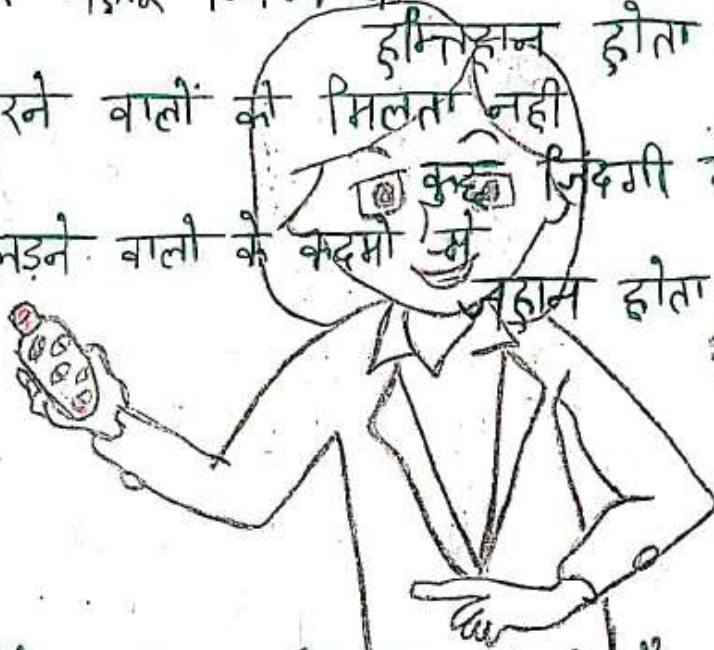 इम्तिहान होता
रने वालों को मिलता नही
कुछ जिंदगी
लड़ने वालो के कदमो मे
जहान होता